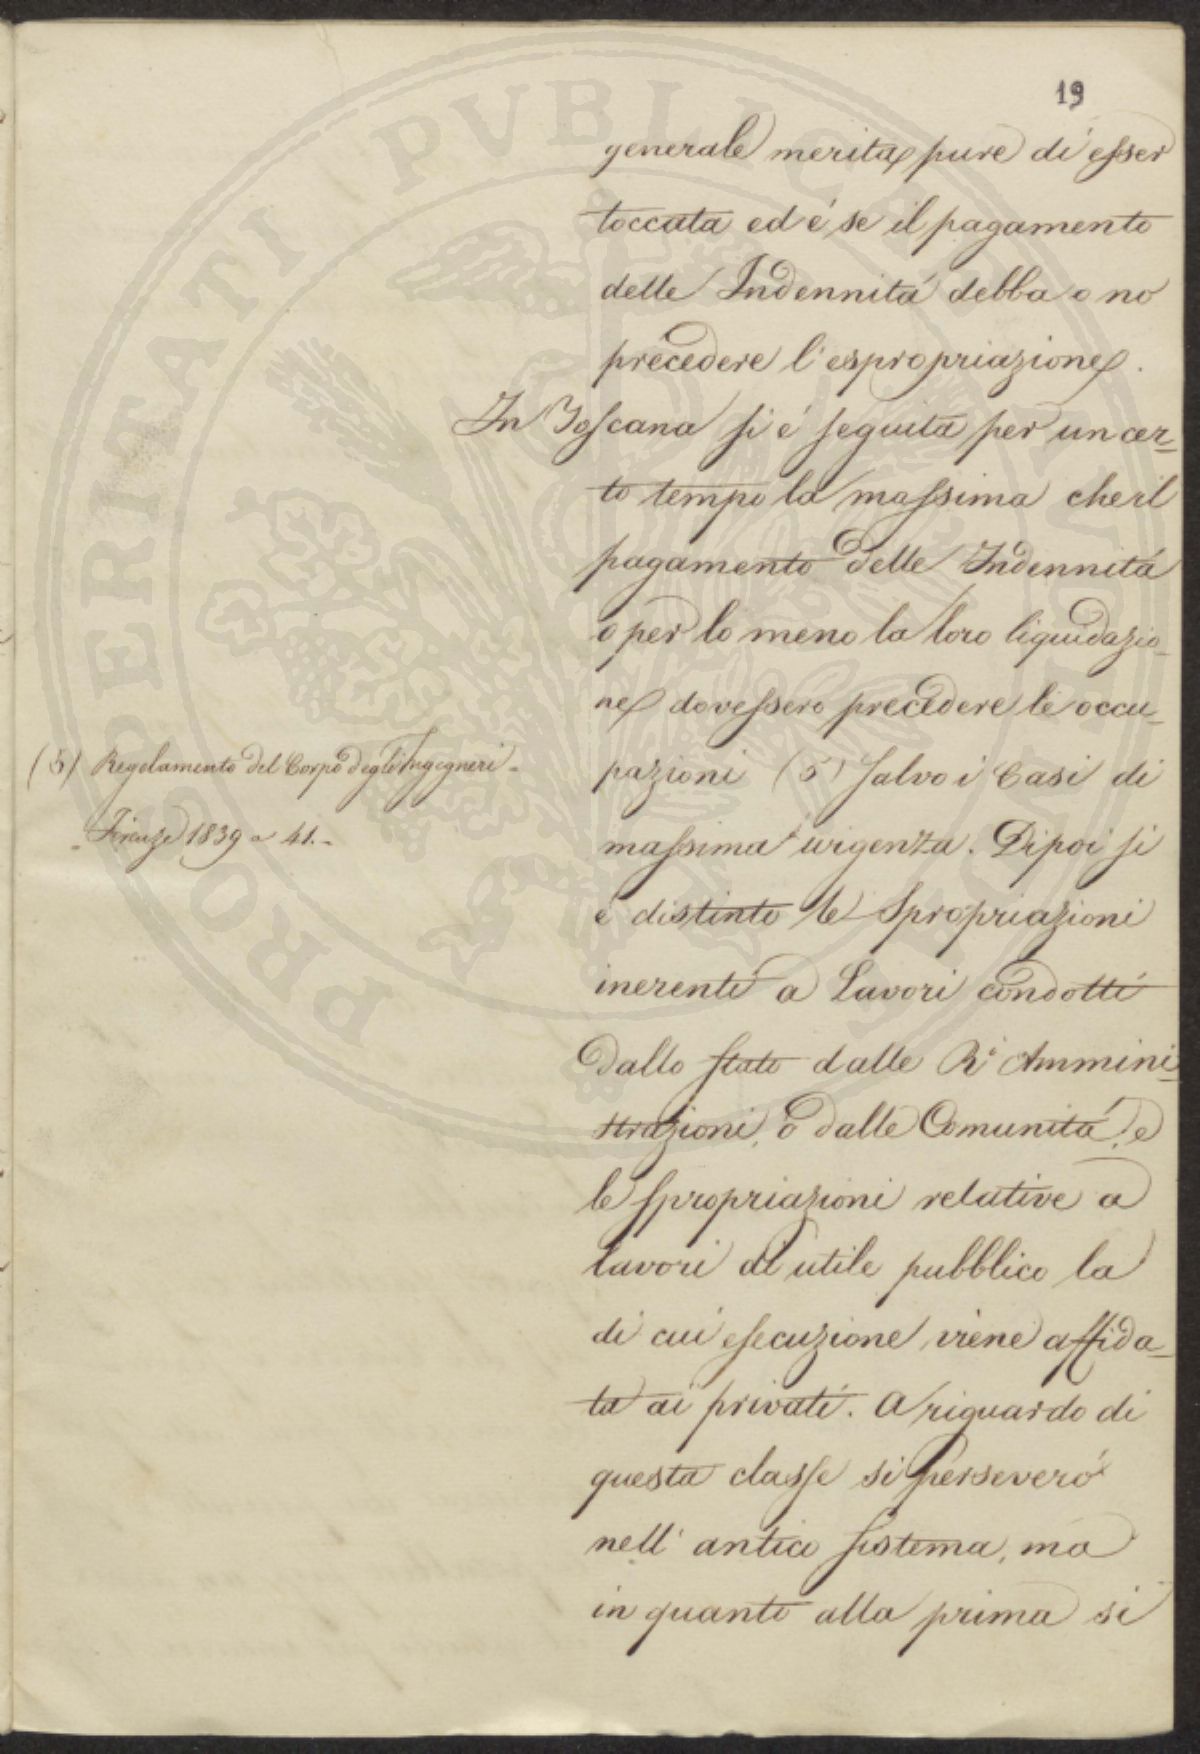 19
generale merita pure di esser
toccata ed é se il pagamento
delle Indennitá debba o no
precedere l'espropriazione.
In Toscana si é seguita per un cer-
to tempo la massima che il
pagamento delle Indennitá
o per lo meno la loro liquidazio-
ne dovessero precedere le occu-
pazioni (5) salvo i Casi di
massima urgenza. Dipoi si
é distinto le Spropriazioni
inerenti a Lavori condotti
dallo stato dalle Re Ammini-
strazioni, o dalle Comunitá, e
le spropriazioni relative a
lavori di utile pubblico la
di cui esecuzione viene affida-
ta ai privati. A riguardo di
questa classe si perseveró
nell' antico sistema, ma
in quanto alla prima si
(5) Regolamento del Corpo degl'Ingegneri-
Firenze 1839 a 41.-
PRO PERITATI PVBLICAE